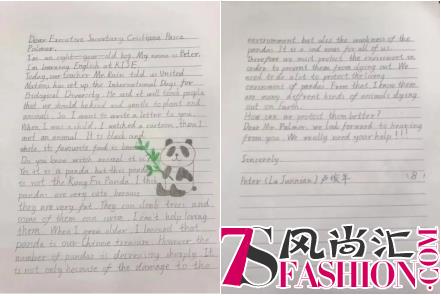 Dear Executive Secretary Cristiana Pasca
Palmer,
I'm an eight-year-old boy. My name is Peter.
I'm learning English at KISE.
Today, our teacher Mr. Kain told us United
Nations has set up the International Days for
Biological Diversity. He said it will teach people
that we should be kind and gentle to plant and
animals. So I want to write a letter to you.
When I was a child, I watched a cartoon, then I
met an animal. It is black and
white, its favourite food is bamboo
Do you know which animal it is?
Yes it is a panda but this panda
is not the Kung Fu Panda. I think
pandas are very cute because
they are very fat. They can climb trees and
some of them can swim. I can't help loving
them. When I grew older I learned that
panda is our Chinese treasure. However the
number of pandas is decreasing sharply. It
is not only because of the damage to the
environment, but also the weakness of the
pandas. It is a sad news for all of us.
Therefore we must protect the environment in
order to prevent them from dying out. We
need to do a lot to protect the living
environment of pandas. From that, I know there
are many different kinds of animals dying
out on Earth.
How can we protect them better?
Dear Ms. Palmer, we look forward to hearing
from you. We really need your help!!!
Sincerely
Peter (Lu Junnian) (8)
7S风尚汇
FASHION.com